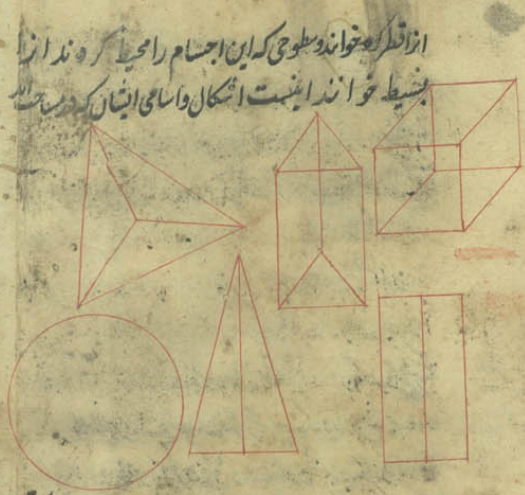 انرا قطر کره خوانند و سطوحی که این اجسام را محیط کردند انرا
بسیط خوانند اینست اشکال و اسامی ایشان که در مساحت